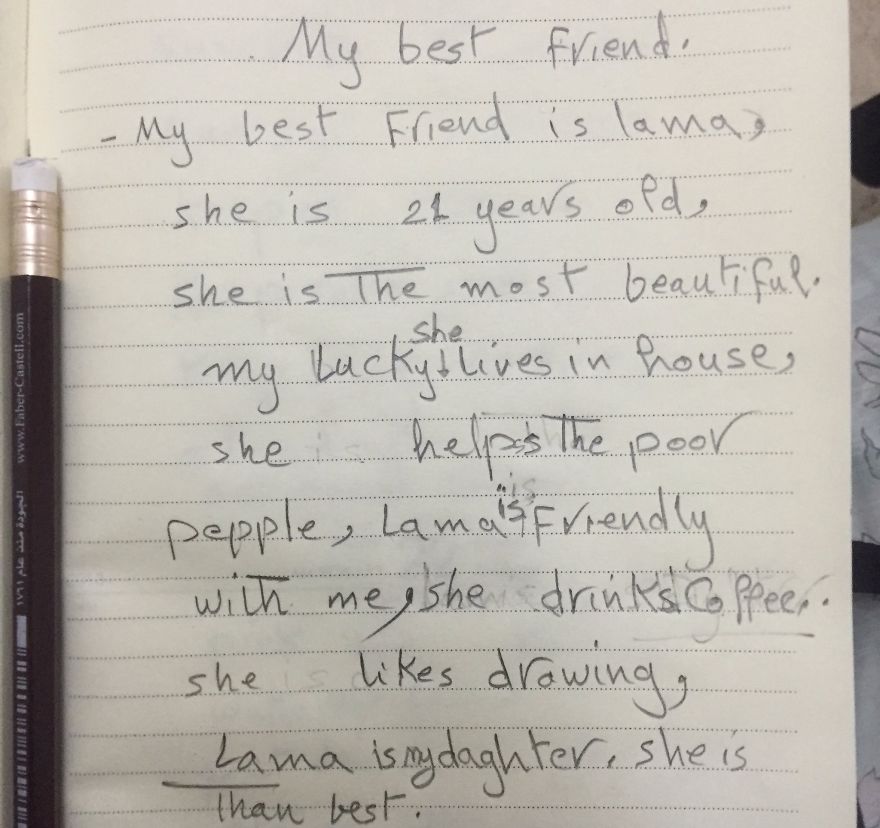 My best friend.
- My best Friend is lama,
she is 21 years old,
she is The most beautiful.
she
my lucky lives in house,
she helps The poor
pepple, Lama is Friendly
with me, she drinks Coffee.
she likes drawing,
Lama is my daghter. she is
Than best.
www.Faber-Castell.com
الجودة منذ عام ١٧٦١